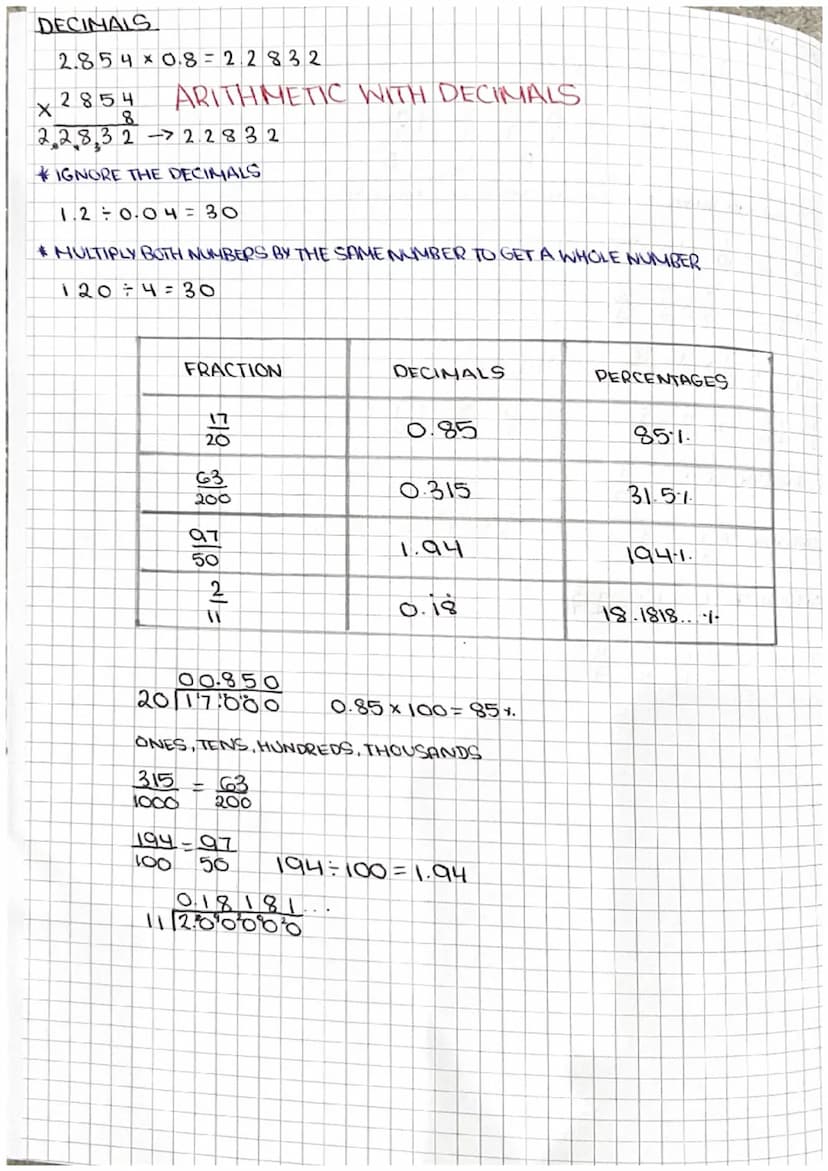 DECIMALS
2.854 × 0.8 = 2.2832
ARITHMETIC WITH DECIMALS
× 2854
8
22832 → 2.2832
* IGNORE THE DECIMALS
1.2 ÷ 0.04 = 30
* MULTIPLY BOTH NUMBERS BY THE SAME NUMBER TO GET A WHOLE NUMBER
120 ÷ 4 = 30
FRACTION DECIMALS PERCENTAGES
17/20 0.85 85%
63/200 0.315 31.5%
97/50 1.94 194%
2/11 0.1̇8̇ 18.1818...%
00.850
20 17.000 0.85 × 100 = 85%
ONES, TENS, HUNDREDS, THOUSANDS
315/1000 = 63/200
194/100 = 97/50 194 ÷ 100 = 1.94
0.18181...
11 2.00000